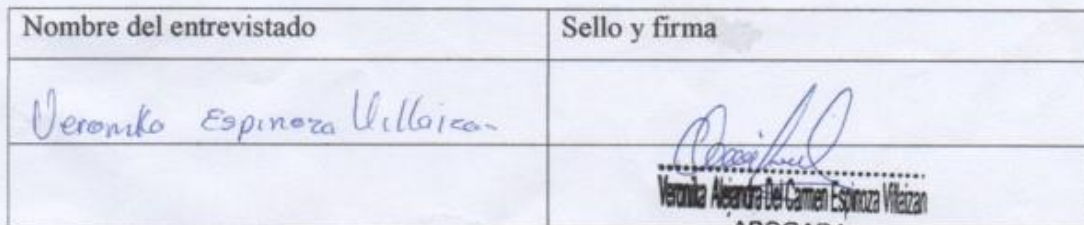 Nombre del entrevistado
Sello y firma
Veronika Espinoza Villaizan
Veronika Alejandra Del Carmen Espinoza Villaizan
ABOGADA